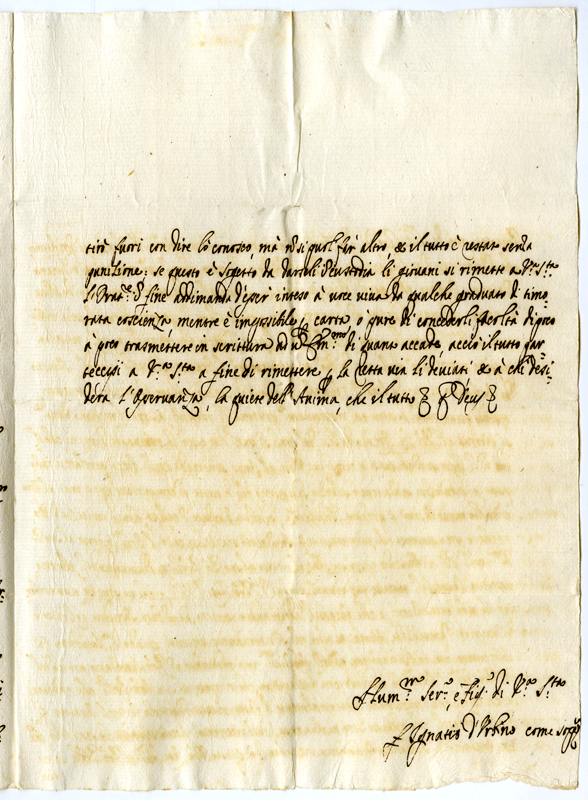 tirò fuori con dire lo conosco, mà nõ si puol far altro, & il tutto è restato senza
punizione: se questo è sogetto da darseli Custodia li giovani si rimette a V.ra S.tà
fine addimanda d'esser inteso à voce viva da qualche graduato di timo
rata coscienza mentre è impossibile carta, o pure di concederli facoltà di
à trasmettere in scrittura ad di quanto accade, acciò il tutto par
tecipi a V.ra S.tà a fine di rimettere la retta via li deviati & a chi desi-
dera l'Osservanza, la quiete dell'Anima, che il tutto Deus
Hum.mo Ser.e e Fig.o di V.ra S.tà
F Ignatio d'Urbino come sop.a